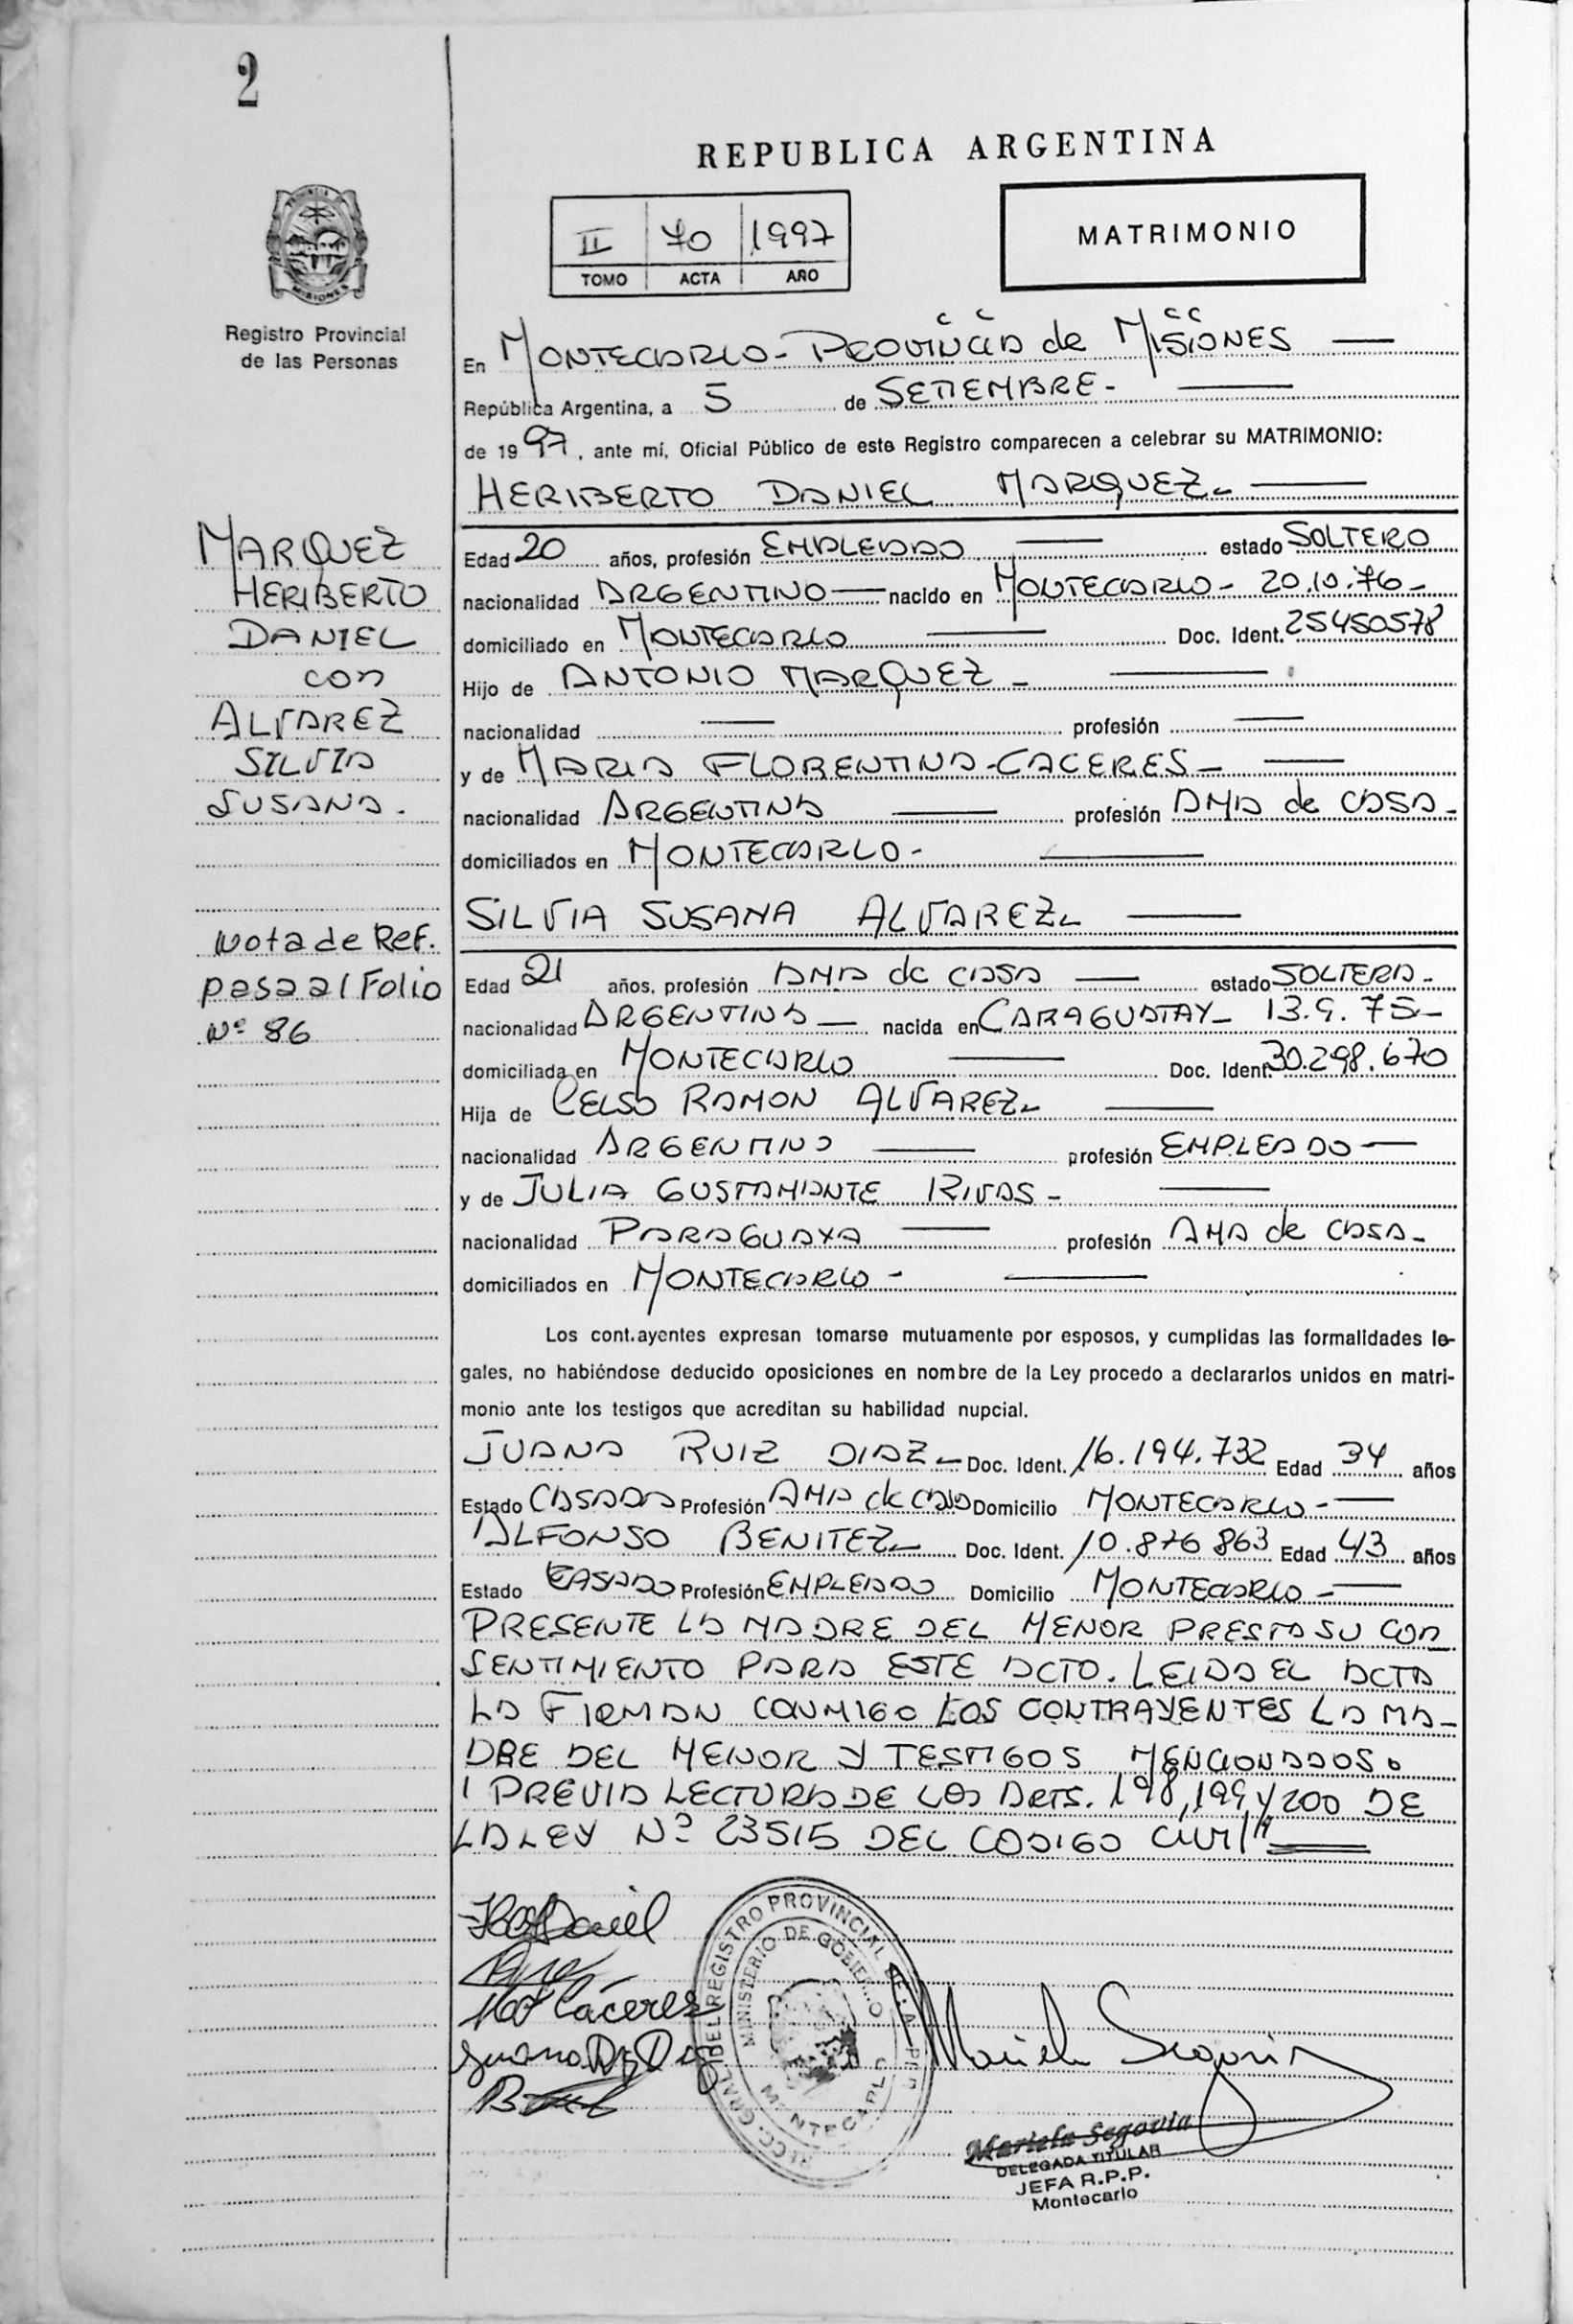 2
REPUBLICA ARGENTINA
II 70 1997
TOMO ACTA AÑO
MATRIMONIO
PROVINCIA
MISIONES
Registro Provincial
de las Personas
En MONTECARLO - PROVINCIA de MISIONES
República Argentina, a 5 de SETIEMBRE -
de 1997, ante mi, Oficial Público de este Registro comparecen a celebrar su MATRIMONIO:
HERIBERTO DANIEL MARQUEZ -
MARQUEZ
HERIBERTO
DANIEL
con
ALVAREZ
SILVIA
SUSANA.
Edad 20 años, profesión EMPLEADO estado SOLTERO
nacionalidad ARGENTINO nacido en MONTECARLO - 20.10.76 -
domiciliado en MONTECARLO Doc. Ident. 25450578
Hijo de ANTONIO MARQUEZ -
nacionalidad profesión
y de MARIA FLORENTINA CACERES -
nacionalidad ARGENTINA profesión AMA de CASA -
domiciliados en MONTECARLO -
SILVIA SUSANA ALVAREZ -
Nota de Ref.
pasa al Folio
Nº 86
Edad 21 años, profesión AMA de CASA estado SOLTERA -
nacionalidad ARGENTINA nacida en CARAGUATAY - 13.9.75 -
domiciliada en MONTECARLO Doc. Ident. 30.298.670
Hija de CELSO RAMON ALVAREZ -
nacionalidad ARGENTINO profesión EMPLEADO
y de JULIA GUSTAMANTE RIVAS -
nacionalidad PARAGUAYA profesión AMA de CASA -
domiciliados en MONTECARLO -
Los cont.ayentes expresan tomarse mutuamente por esposos, y cumplidas las formalidades le-
gales, no habiéndose deducido oposiciones en nombre de la Ley procedo a declararlos unidos en matri-
monio ante los testigos que acreditan su habilidad nupcial.
JUANA RUIZ DIAZ - Doc. Ident. 16.194.732 Edad 34 años
Estado CASADA Profesión AMA de CASA Domicilio MONTECARLO -
ALFONSO BENITEZ - Doc. Ident. 10.876 863 Edad 43 años
Estado CASADO Profesión EMPLEADO Domicilio MONTECARLO -
PRESENTE LA MADRE DEL MENOR PRESTA SU CON
SENTIMIENTO PARA ESTE ACTO. LEIDA EL ACTA
LA FIRMAN CONMIGO LOS CONTRAYENTES LA MA-
DRE DEL MENOR Y TESTIGOS MENCIONADOS.
PREVIA LECTURA DE LOS ARTS. 198, 199 Y 200 DE
LA LEY Nº 23515 DEL CODIGO CIVIL"
Daniel
Cáceres
Juana
Mariela Segovia
DEL REGISTRO PROVINCIAL
MINISTERIO DE GOBIERNO
MONTECARLO
Mariela Segovia
DELEGADA TITULAR
JEFA R.P.P.
Montecarlo